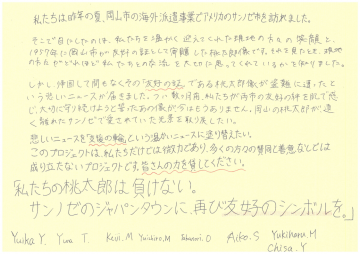 私たちは昨年の夏、岡山市の海外派遣事業でアメリカのサンノゼ市を訪れました。
そこで目にしたのは、私たちを温かく迎えてくれた現地の方々の笑顔と、
1957年に岡山市が友好の証として寄贈した桃太郎像です。それを見たとき、現地の
方々がどれほど私たちとの交流を大切に思ってくれているかを知りました。
しかし、帰国して間もなくその「友好の証」である桃太郎像が盗難に遭ったと
いう悲しいニュースが届きました。つい数ヶ月前、私たちが両市の友好の絆を肌で感
じ、大切に守り続けようと誓ったあの像が今はもうありません。岡山の桃太郎が、遠
く離れたサンノゼで愛されていた光景を取り戻したい。
悲しいニュースを「支援の輪」という温かいニュースに塗り替えたい。
このプロジェクトは、私たちだけでは微力であり、多くの方々の賛同と善意なしでは
成り立たないプロジェクトです。皆さんの力を貸してください。
「私たちの桃太郎は負けない。
サンノゼのジャパンタウンに、再び友好のシンボルを。」
Yuika Y. Yuna T. Keiji.M Yuichiro.M .O Aiko.S Yukiharu.M
Chisa.Y